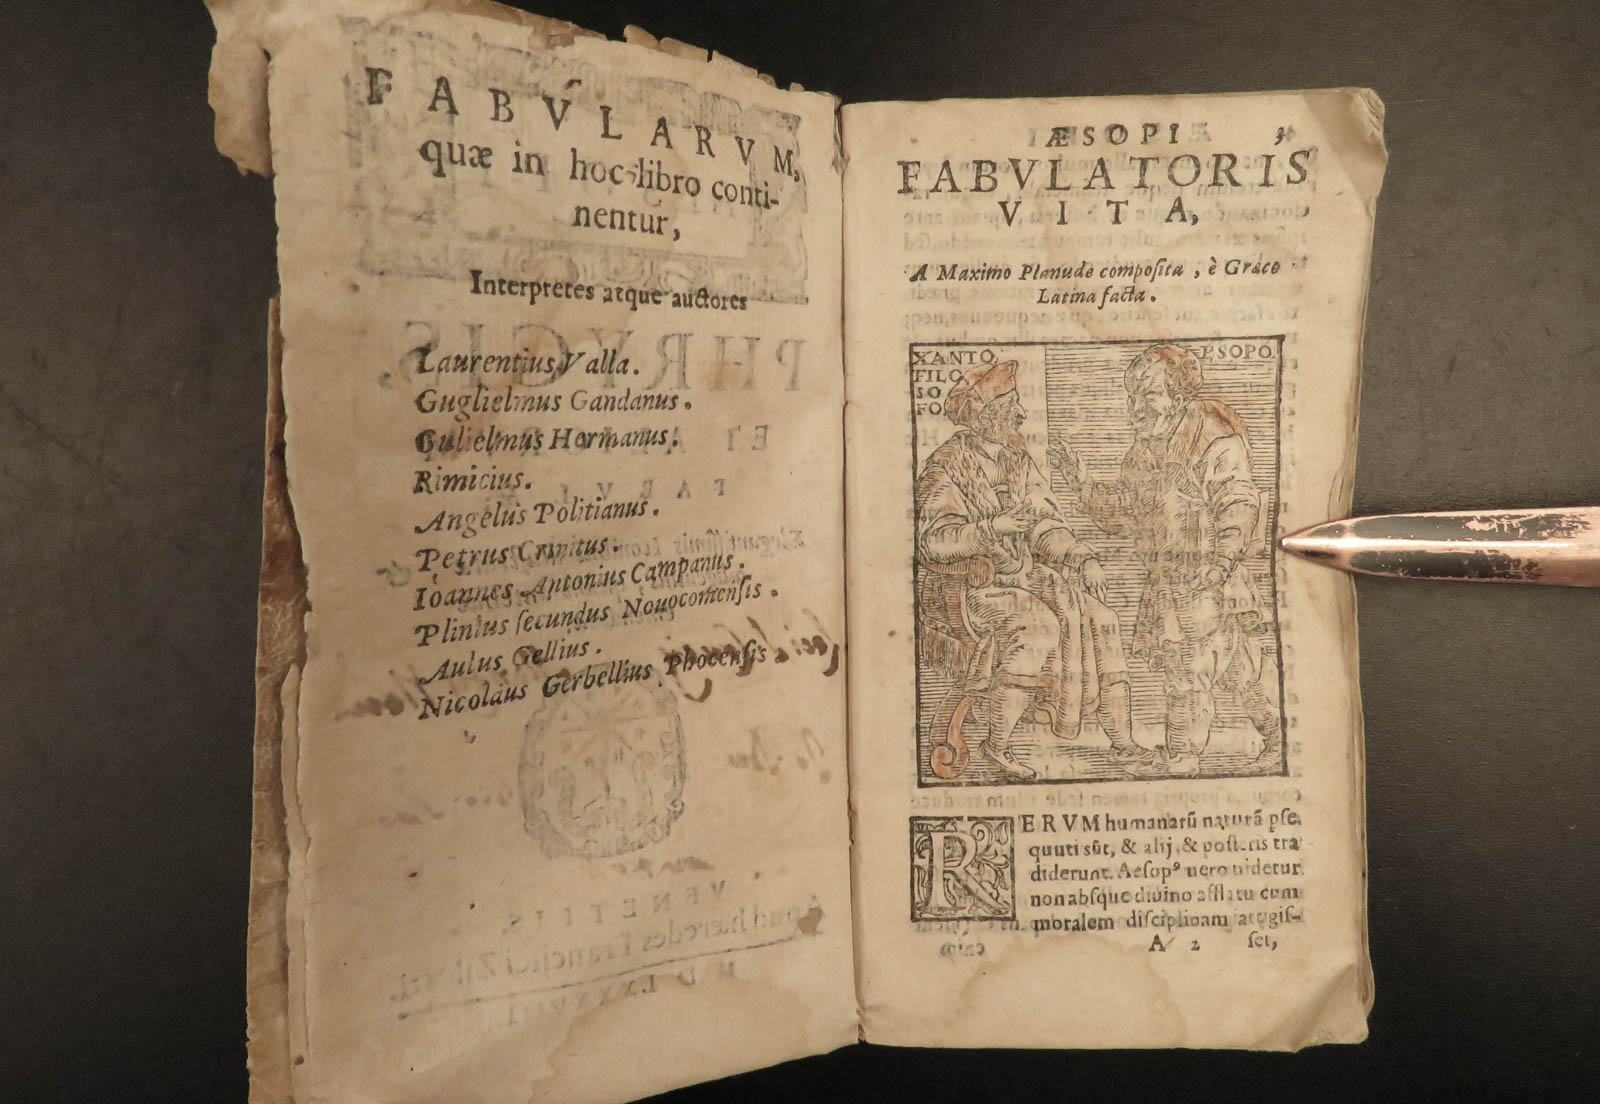 FABVLARVM,
quæ in hoc libro conti-
nentur,
Interpretes atque auctores
Laurentius Valla.
Guglielmus Gandanus.
Gulielmus Hormanus.
Rimicius.
Angelus Politianus.
Petrus Crinitus.
Ioannes Antonius Campanus.
Plinius ſecundus Nouocomenſis.
Aulus Gellius.
Nicolaus Gerbellius Phocenſis.
ÆSOPI 3
FABVLATORIS
VITA,
A Maximo Planude compoſita, è Græco
Latina facta.
XANTO
FILO
SO
FO.
ESOPO.
RERVM humanarū naturā pſe
quuti sūt, & alij, & poſteris tra
diderunt. Aeſopꝰ uero uidetur
non abſque diuino afflatu cum
moralem diſciplinam atygiſ-
A 2 ſet,